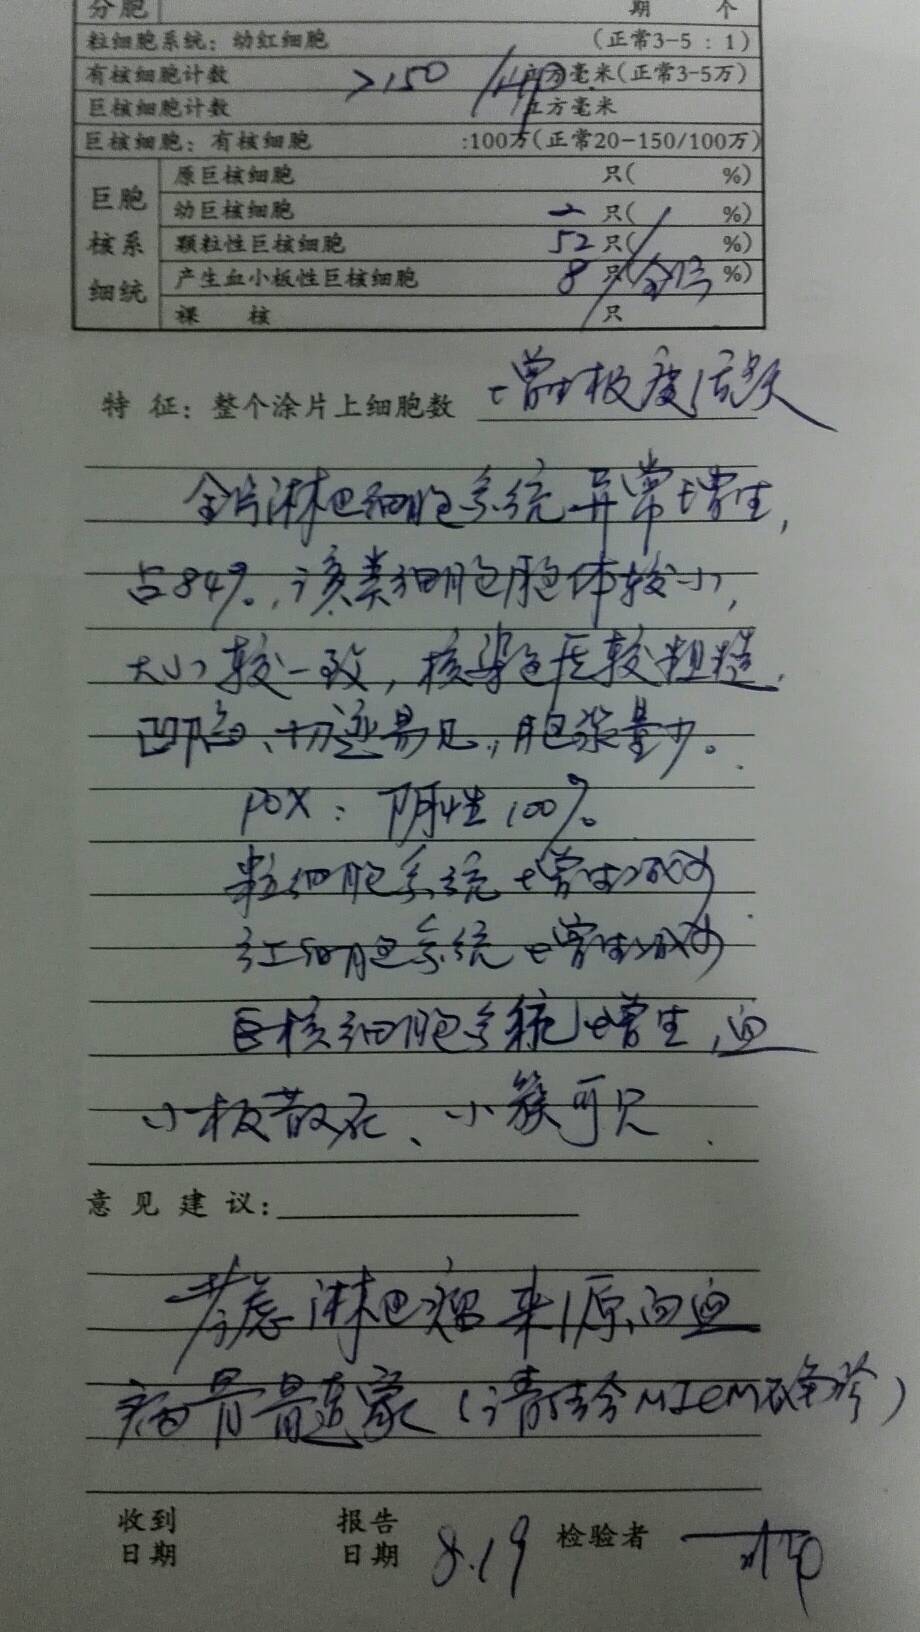 分胞 期 个
粒细胞系统：幼红细胞 （正常3-5：1）
有核细胞计数 >150 /HP 立方毫米（正常3-5万）
巨核细胞计数 立方毫米
巨核细胞：有核细胞 :100万（正常20-150/100万）
巨核细胞系统
原巨核细胞 只( %)
幼巨核细胞 只( %)
颗粒性巨核细胞 52 只( %)
产生血小板性巨核细胞 8 只( %)
裸 核 只
特 征：整个涂片上细胞数 增生极度活跃
全片淋巴细胞系统异常增生，
占84%。该类细胞胞体较小，
大小较一致，核染色质较粗糙，
凹陷、切迹易见，胞浆量少。
POX：阴性100%。
粒细胞系统增生减少
红细胞系统增生减少
巨核细胞系统增生，血
小板散在、小簇可见
意 见 建 议：
考虑淋巴瘤来源的血
病骨髓象（请结合MICM确诊）
收到日期 报告日期 8.19 检验者